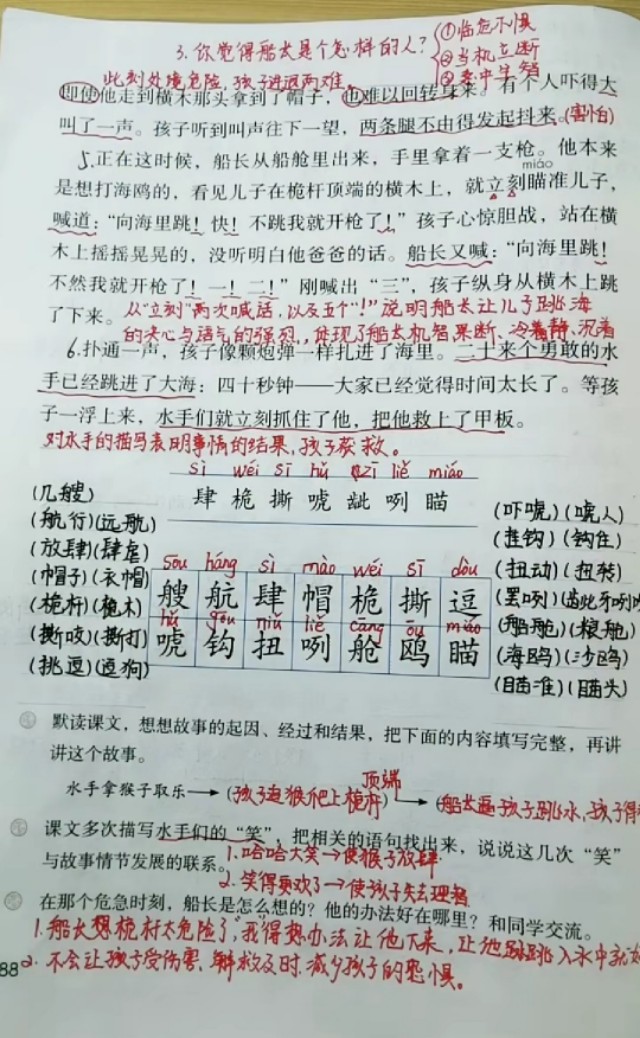 3.你觉得船长是个怎样的人？
①临危不惧
②当机立断
③急中生智
此刻处境危险，孩子进退两难。
即使他走到横木那头拿到了帽子，也难以回转身来。有个人吓得大
叫了一声。孩子听到叫声往下一望，两条腿不由得发起抖来。(害怕)
5.正在这时候，船长从船舱里出来，手里拿着一支枪。他本来
miáo
是想打海鸥的，看见儿子在桅杆顶端的横木上，就立刻瞄准儿子，
喊道：“向海里跳！快！不跳我就开枪了！”孩子心惊胆战，站在横
木上摇摇晃晃的，没听明白他爸爸的话。船长又喊：“向海里跳！
不然我就开枪了！一！二！”刚喊出“三”，孩子纵身从横木上跳
了下来。
从“立刻”两次喊话，以及五个“！”说明船长让儿子跳海
的决心与语气的强烈，体现了船长机智果断、冷静、沉着
6.扑通一声，孩子像颗炮弹一样扎进了海里。二十来个勇敢的水
手已经跳进了大海：四十秒钟——大家已经觉得时间太长了。等孩
子一浮上来，水手们就立刻抓住了他，把他救上了甲板。
对水手的描写表明事情的结果，孩子获救。
sì wéi sī hǔ zī liě miáo
肆 桅 撕 唬 龇 咧 瞄
(几艘)
(航行)(远航)
(放肆)(肆虐)
(帽子)(衣帽)
(桅杆)(桅木)
(撕咬)(撕打)
(挑逗)(逗狗)
sōu háng sì mào wéi sī dòu
艘 航 肆 帽 桅 撕 逗
hǔ gōu niǔ liě cāng ōu miáo
唬 钩 扭 咧 舱 鸥 瞄
(吓唬)(唬人)
(挂钩)(钩住)
(扭动)(扭转)
(骂咧)(龇牙咧
(船舱)(粮舱)
(海鸥)(沙鸥)
(瞄准)(瞄头)
默读课文，想想故事的起因、经过和结果，把下面的内容填写完整，再讲
讲这个故事。
顶端
水手拿猴子取乐→(孩子追猴爬上桅杆)→(船长逼孩子跳水，孩子得
课文多次描写水手们的“笑”，把相关的语句找出来，说说这几次“笑”
与故事情节发展的联系。
1.哈哈大笑→使猴子放肆
2.笑得更欢了→使孩子失去理智
在那个危急时刻，船长是怎么想的？他的办法好在哪里？和同学交流。
1.船长想桅杆太危险了，我得想办法让他下来，让他跳入水中就
88
2.不会让孩子受伤害，解救及时，减少孩子的恐惧。